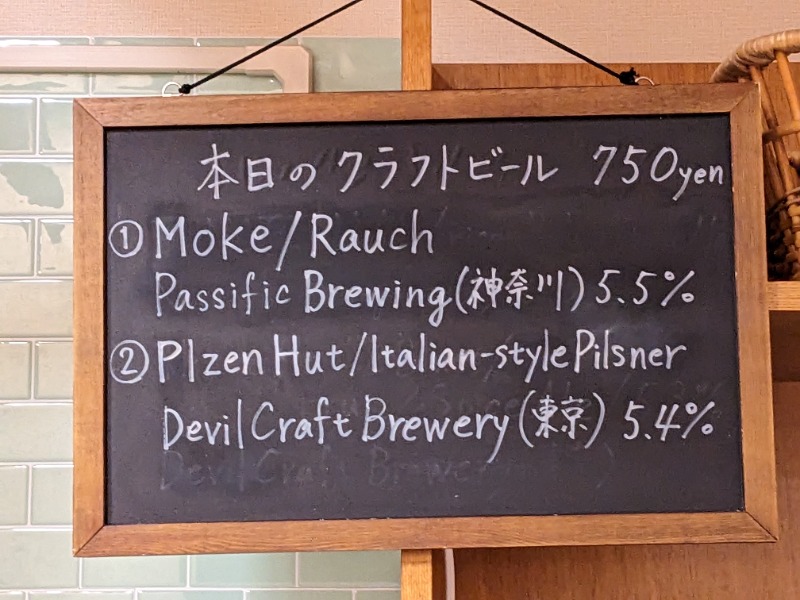 本日のクラフトビール 750yen
① Moke/Rauch
Passific Brewing(神奈川) 5.5%
② Plzen Hut/Italian-style Pilsner
Devil Craft Brewery(東京) 5.4%